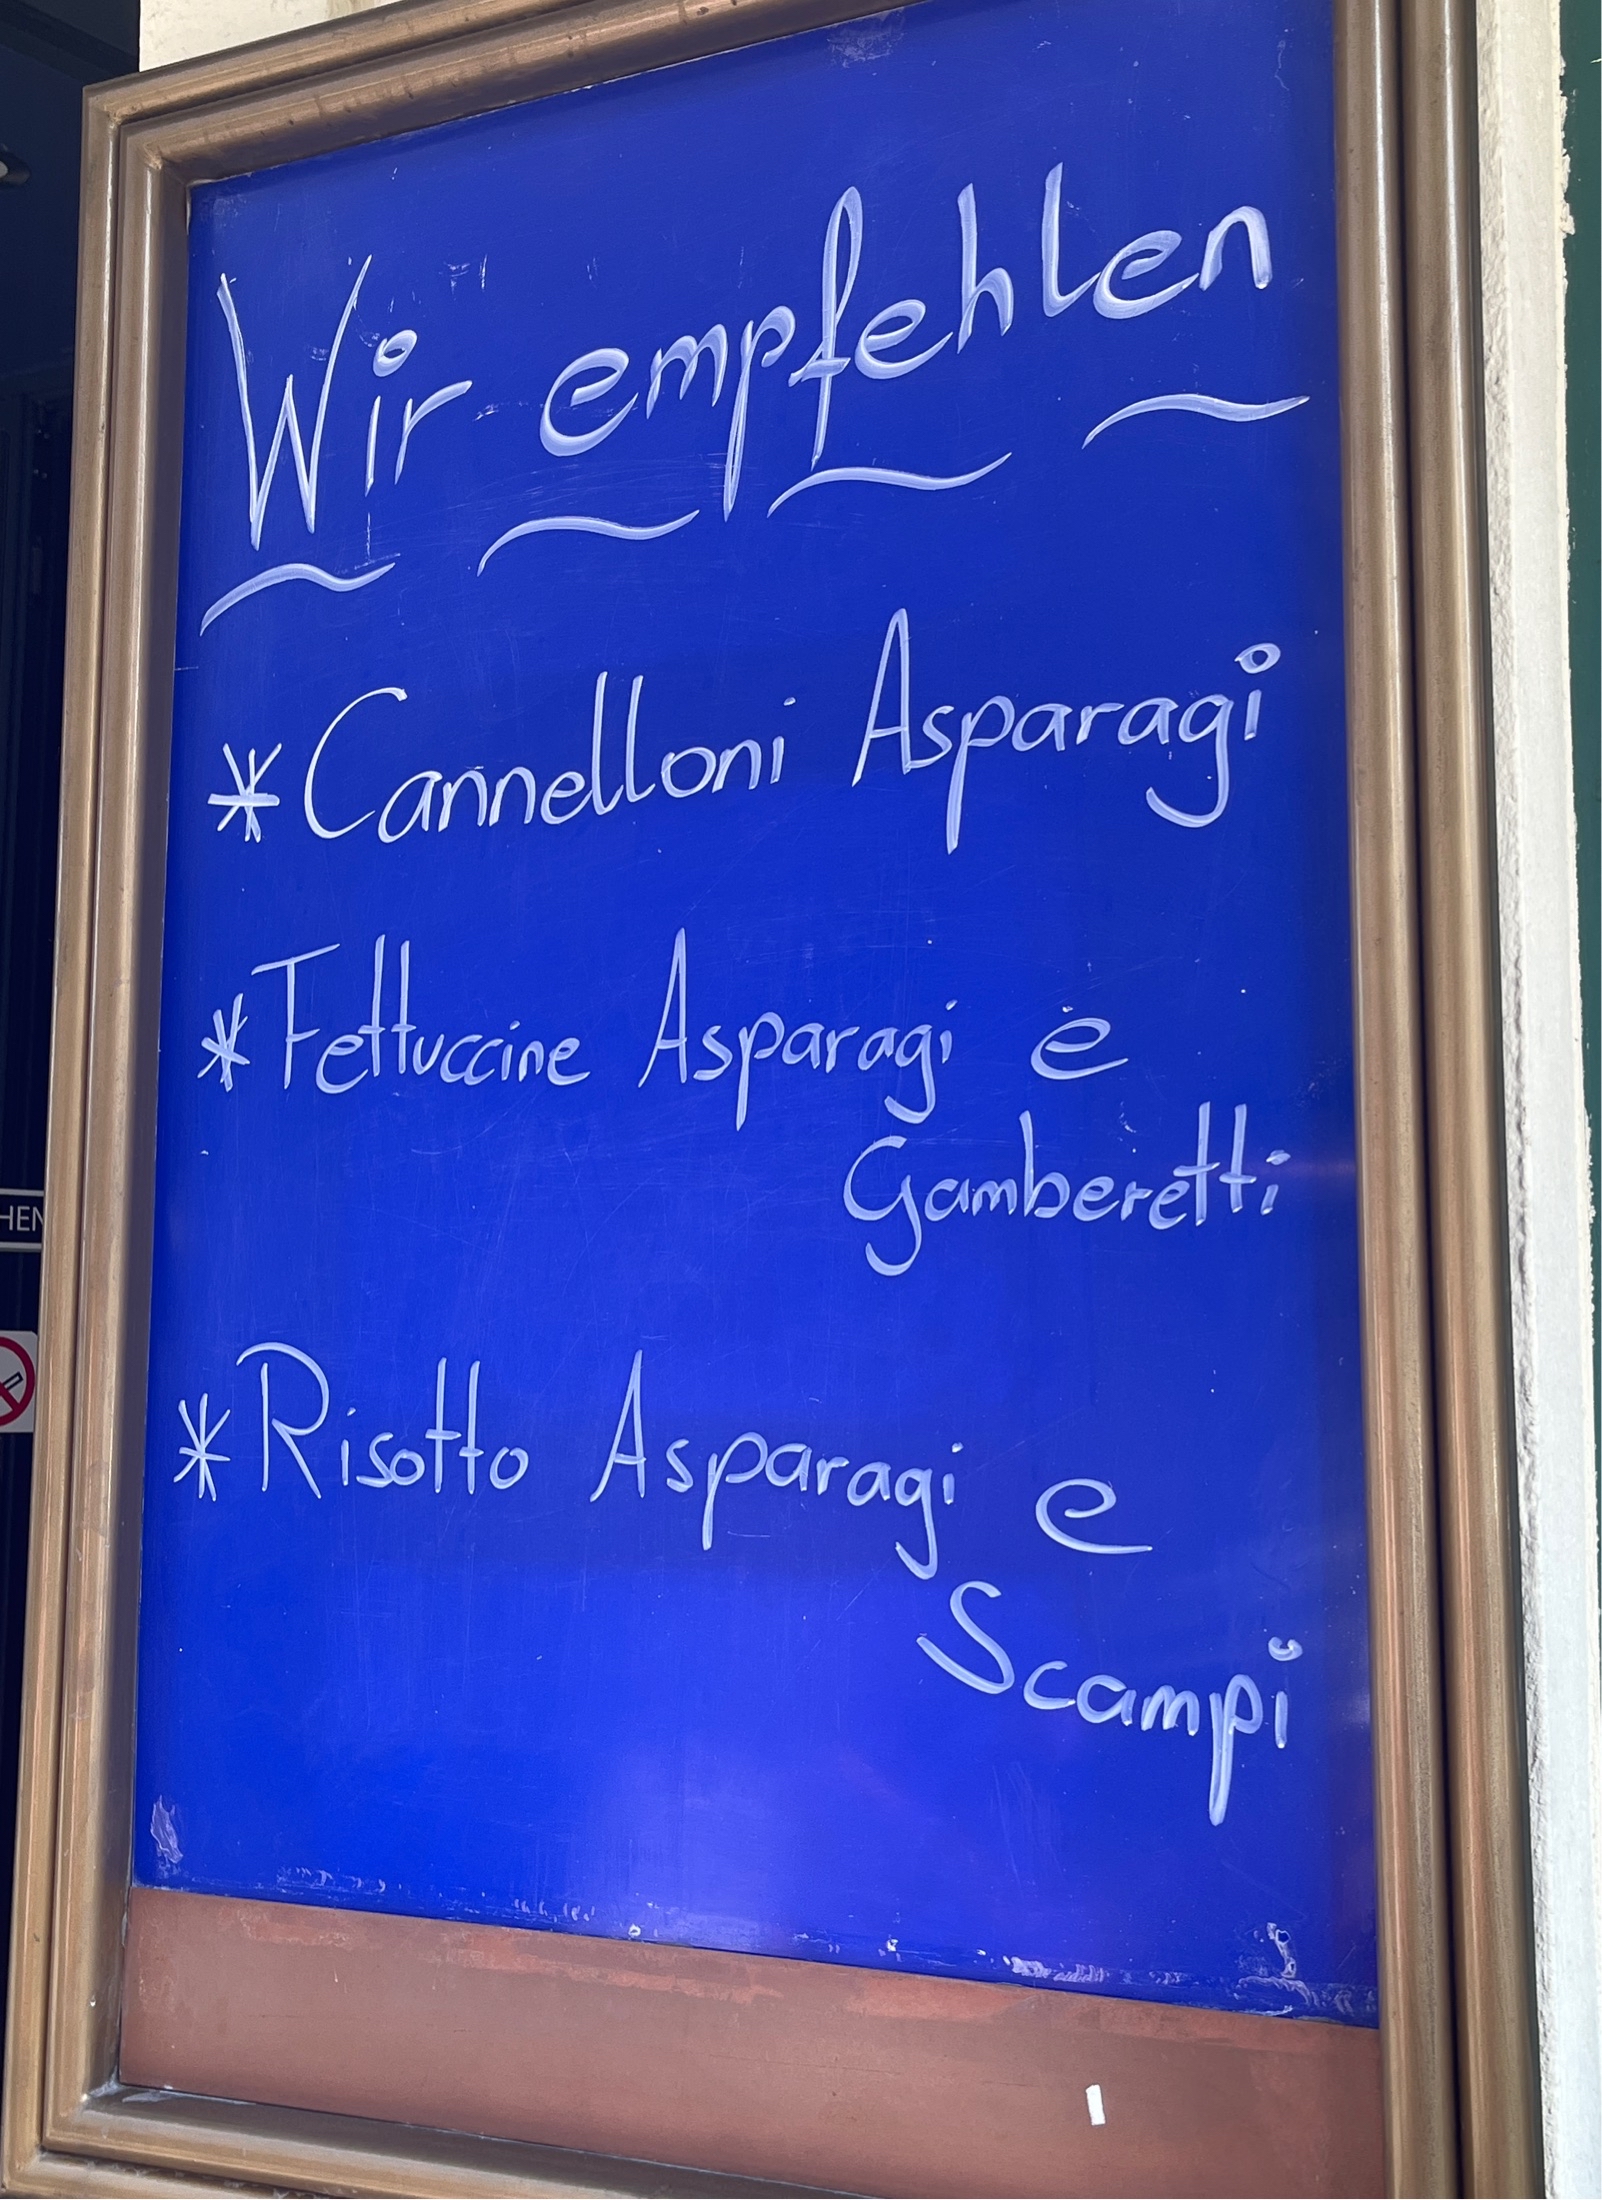 Wir empfehlen
* Cannelloni Asparagi
* Fettuccine Asparagi e
Gamberetti
* Risotto Asparagi e
Scampi
HEN